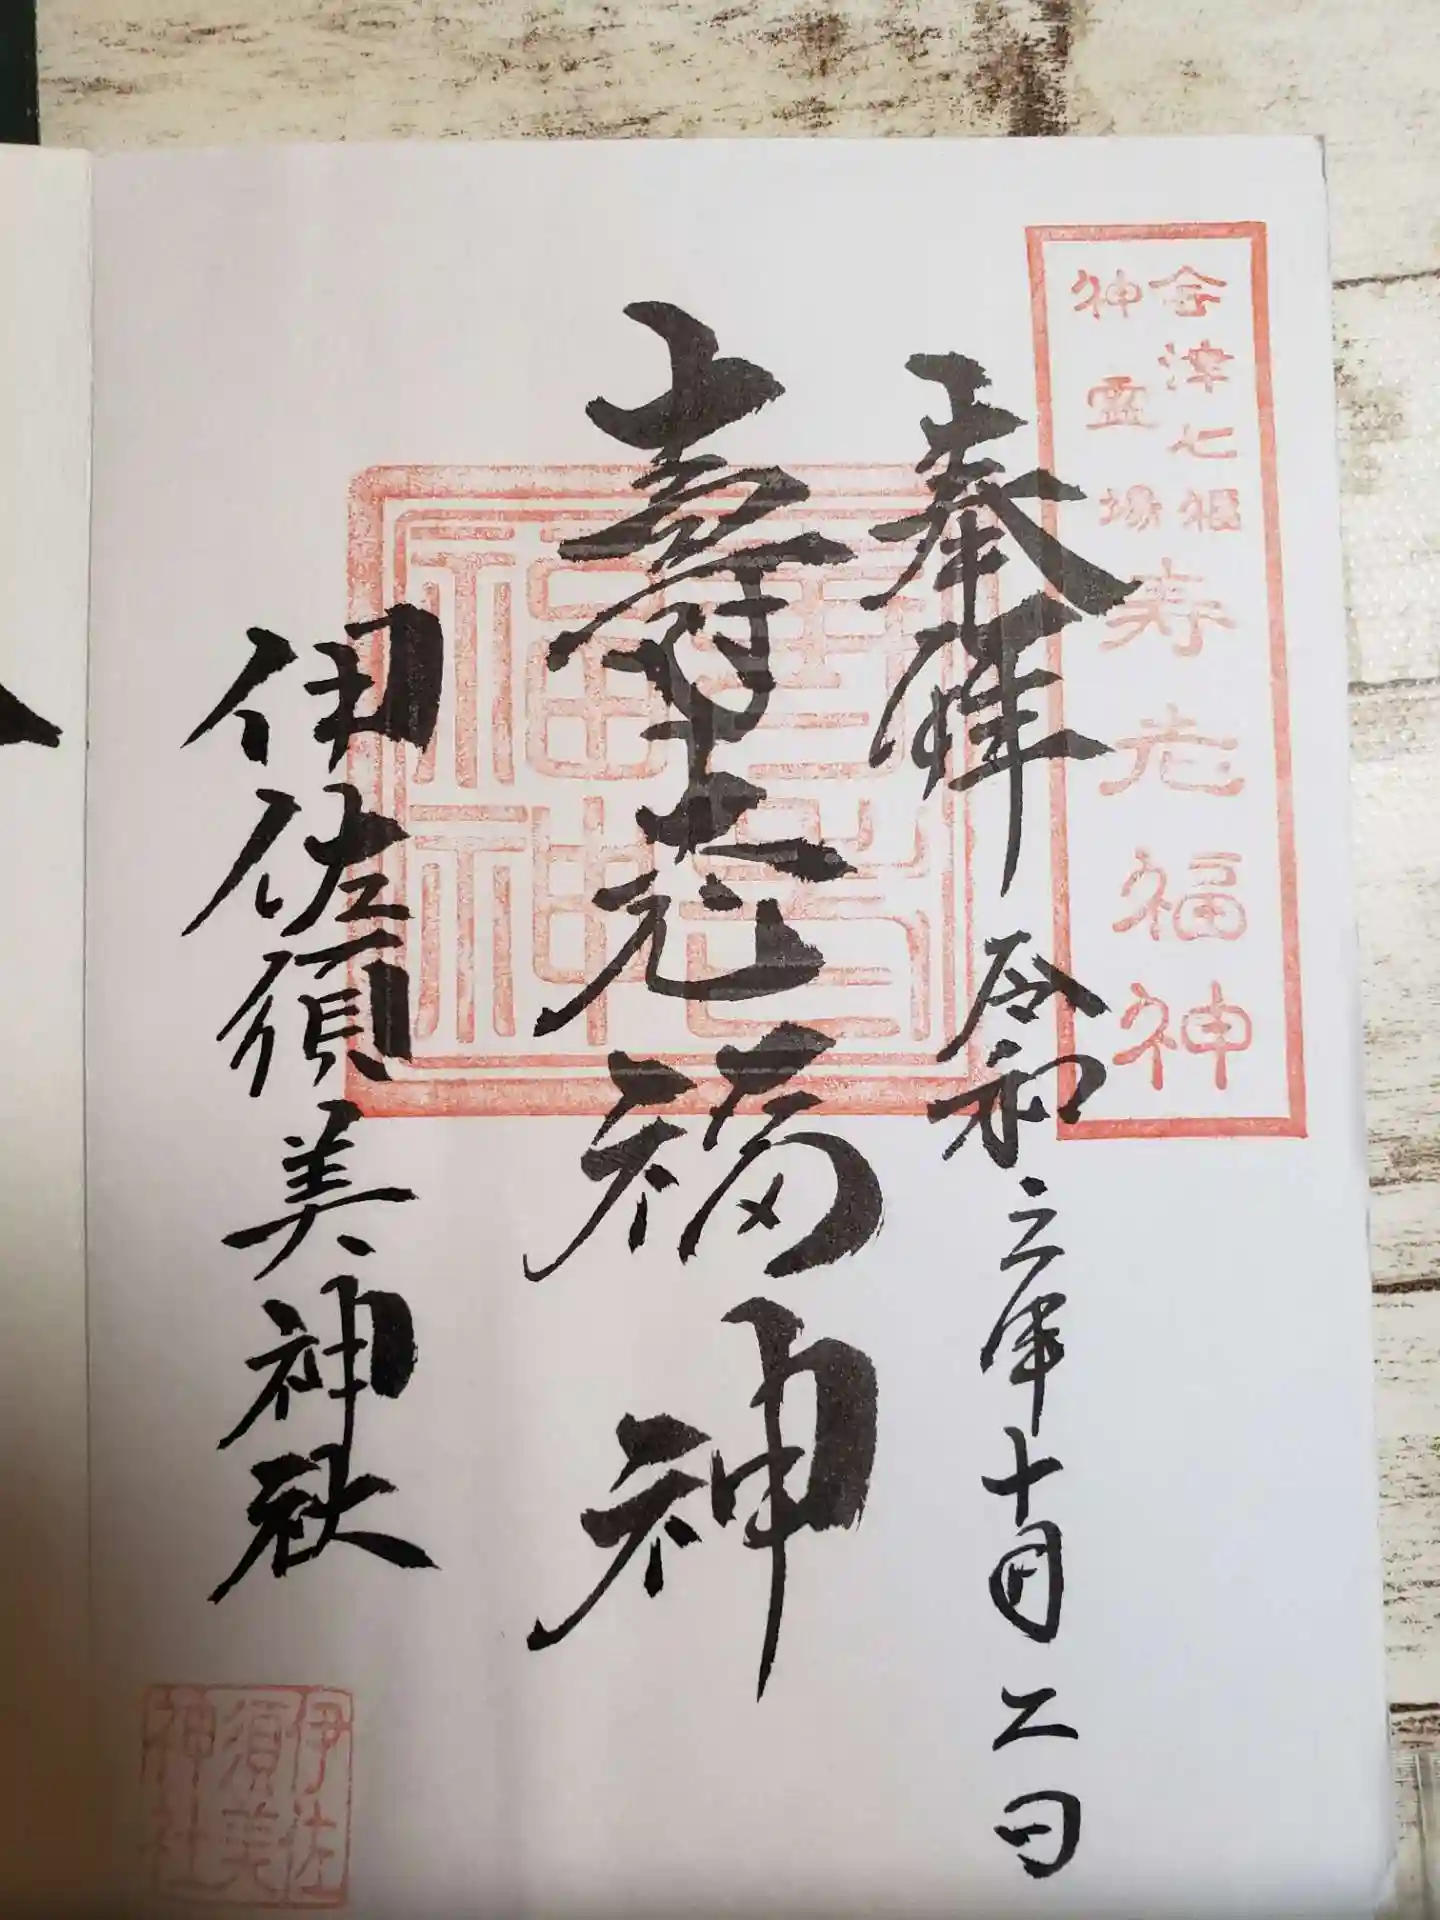 会津七福
神霊場
寿老福神
奉拝
令和三年十月二日
壽老福神
壽老
福神
伊佐須美神社
伊佐
須美
神社